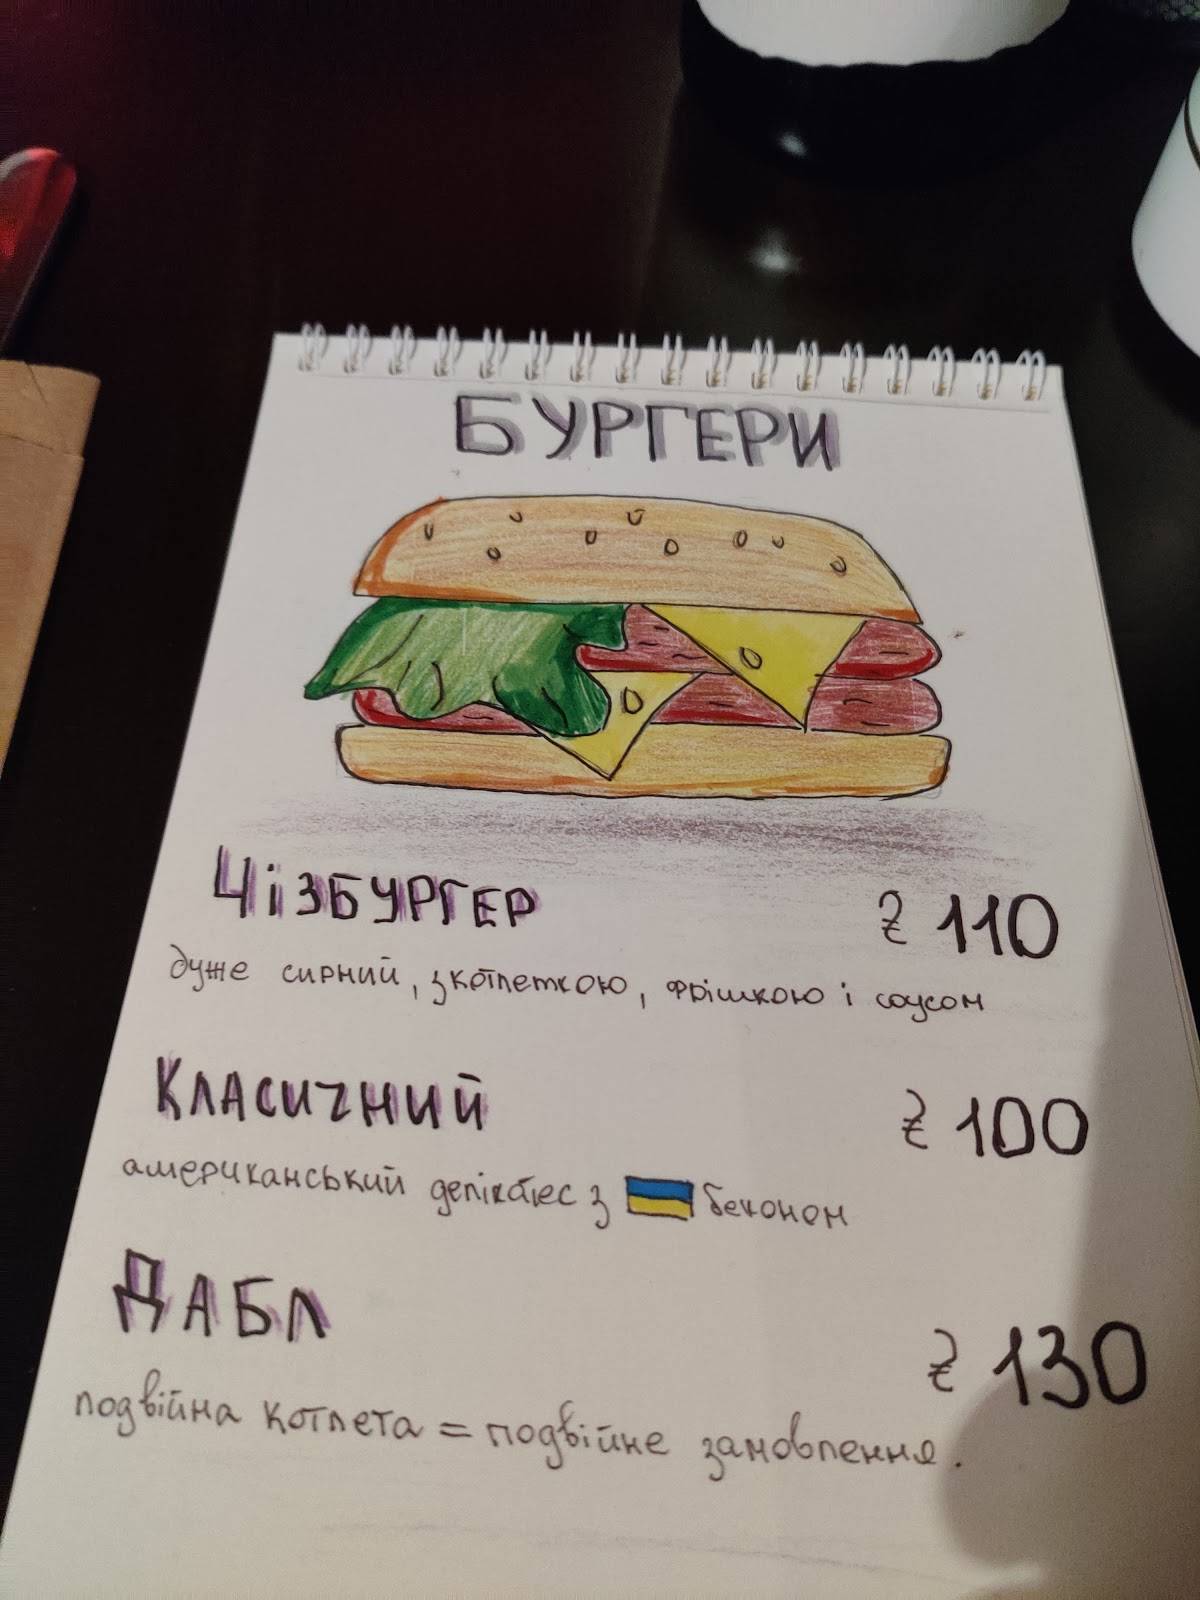 БУРГЕРИ
ЧіЗБУРГЕР ₴ 110
дуже сирний, з котлеткою, фрішкою і соусом
КЛАСИЧНИЙ ₴ 100
американський делікатес з беконом
ДАБЛ ₴ 130
подвійна котлета = подвійне замовлення.